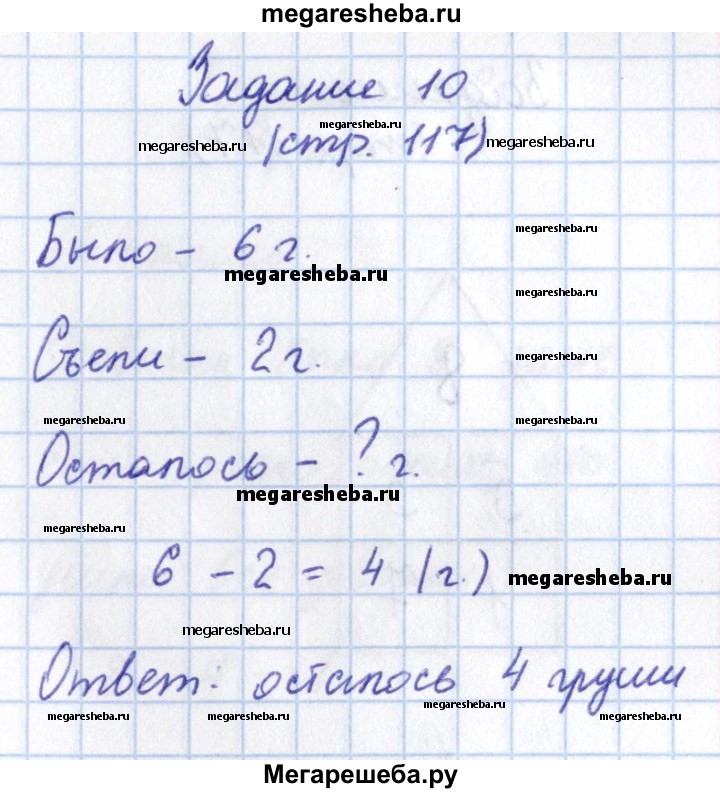 megaresheba.ru
Задание 10
megaresheba.ru
megaresheba.ru (стр. 117) megaresheba.ru
megaresheba.ru
Было - 6 г.
megaresheba.ru
megaresheba.ru
Съели - 2 г.
megaresheba.ru
megaresheba.ru megaresheba.ru
Осталось - ? г.
megaresheba.ru
megaresheba.ru
6 - 2 = 4 (г.) megaresheba.ru
megaresheba.ru
Ответ: осталось 4 груши
megaresheba.ru megaresheba.ru megaresheba.ru megaresheba.ru
Мегарешеба.ру